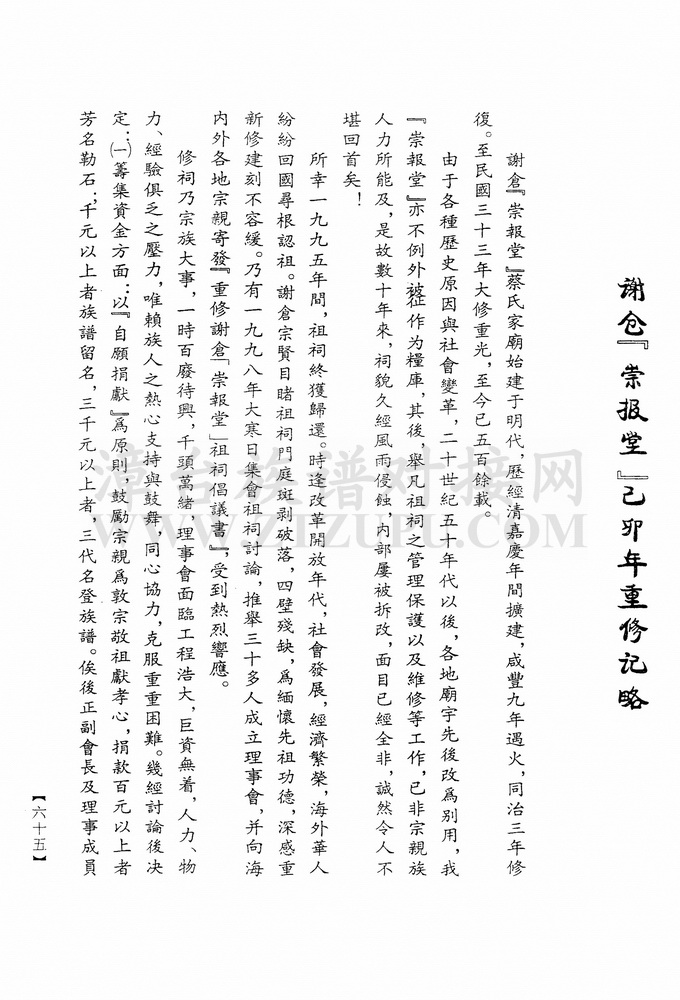 謝倉『崇报堂』己卯年重修记略
謝倉『崇報堂』蔡氏家廟始建于明代，歷經清嘉慶年間擴建，咸豐九年遇火，同治三年修
復。至民國三十三年大修重光，至今已五百餘載。
由于各種歷史原因與社會變革，二十世紀五十年代以後，各地廟宇先後改爲別用，我
『崇報堂』亦不例外被征作为糧庫，其後，舉凡祖祠之管理保護以及維修等工作，已非宗親族
人力所能及，是故數十年來，祠貌久經風雨侵蝕，内部屢被拆改，面目已經全非，誠然令人不
堪回首矣！
所幸一九九五年間，祖祠終獲歸還。時逢改革開放年代，社會發展，經濟繁榮，海外華人
紛紛回國尋根認祖。謝倉宗賢目睹祖祠門庭斑剥破落，四壁殘缺，爲緬懷先祖功德，深感重
新修建刻不容緩。乃有一九九八年大寒日集會祖祠討論，推舉三十多人成立理事會，并向海
内外各地宗親寄發『重修謝倉「崇報堂」祖祠倡議書』，受到熱烈響應。
修祠乃宗族大事，一時百廢待興，千頭萬緒，理事會面臨工程浩大，巨資無着，人力、物
力、經驗俱乏之壓力，唯賴族人之熱心支持與鼓舞，同心協力，克服重重困難。幾經討論後决
定：㈠籌集資金方面：以『自願捐獻』爲原則，鼓勵宗親爲敦宗敬祖獻孝心，捐款百元以上者
芳名勒石；千元以上者族譜留名，三千元以上者，三代名登族譜。俟後正副會長及理事成員
【六十五】
漳台族谱对接网
WWW.ZTZUPU.COM